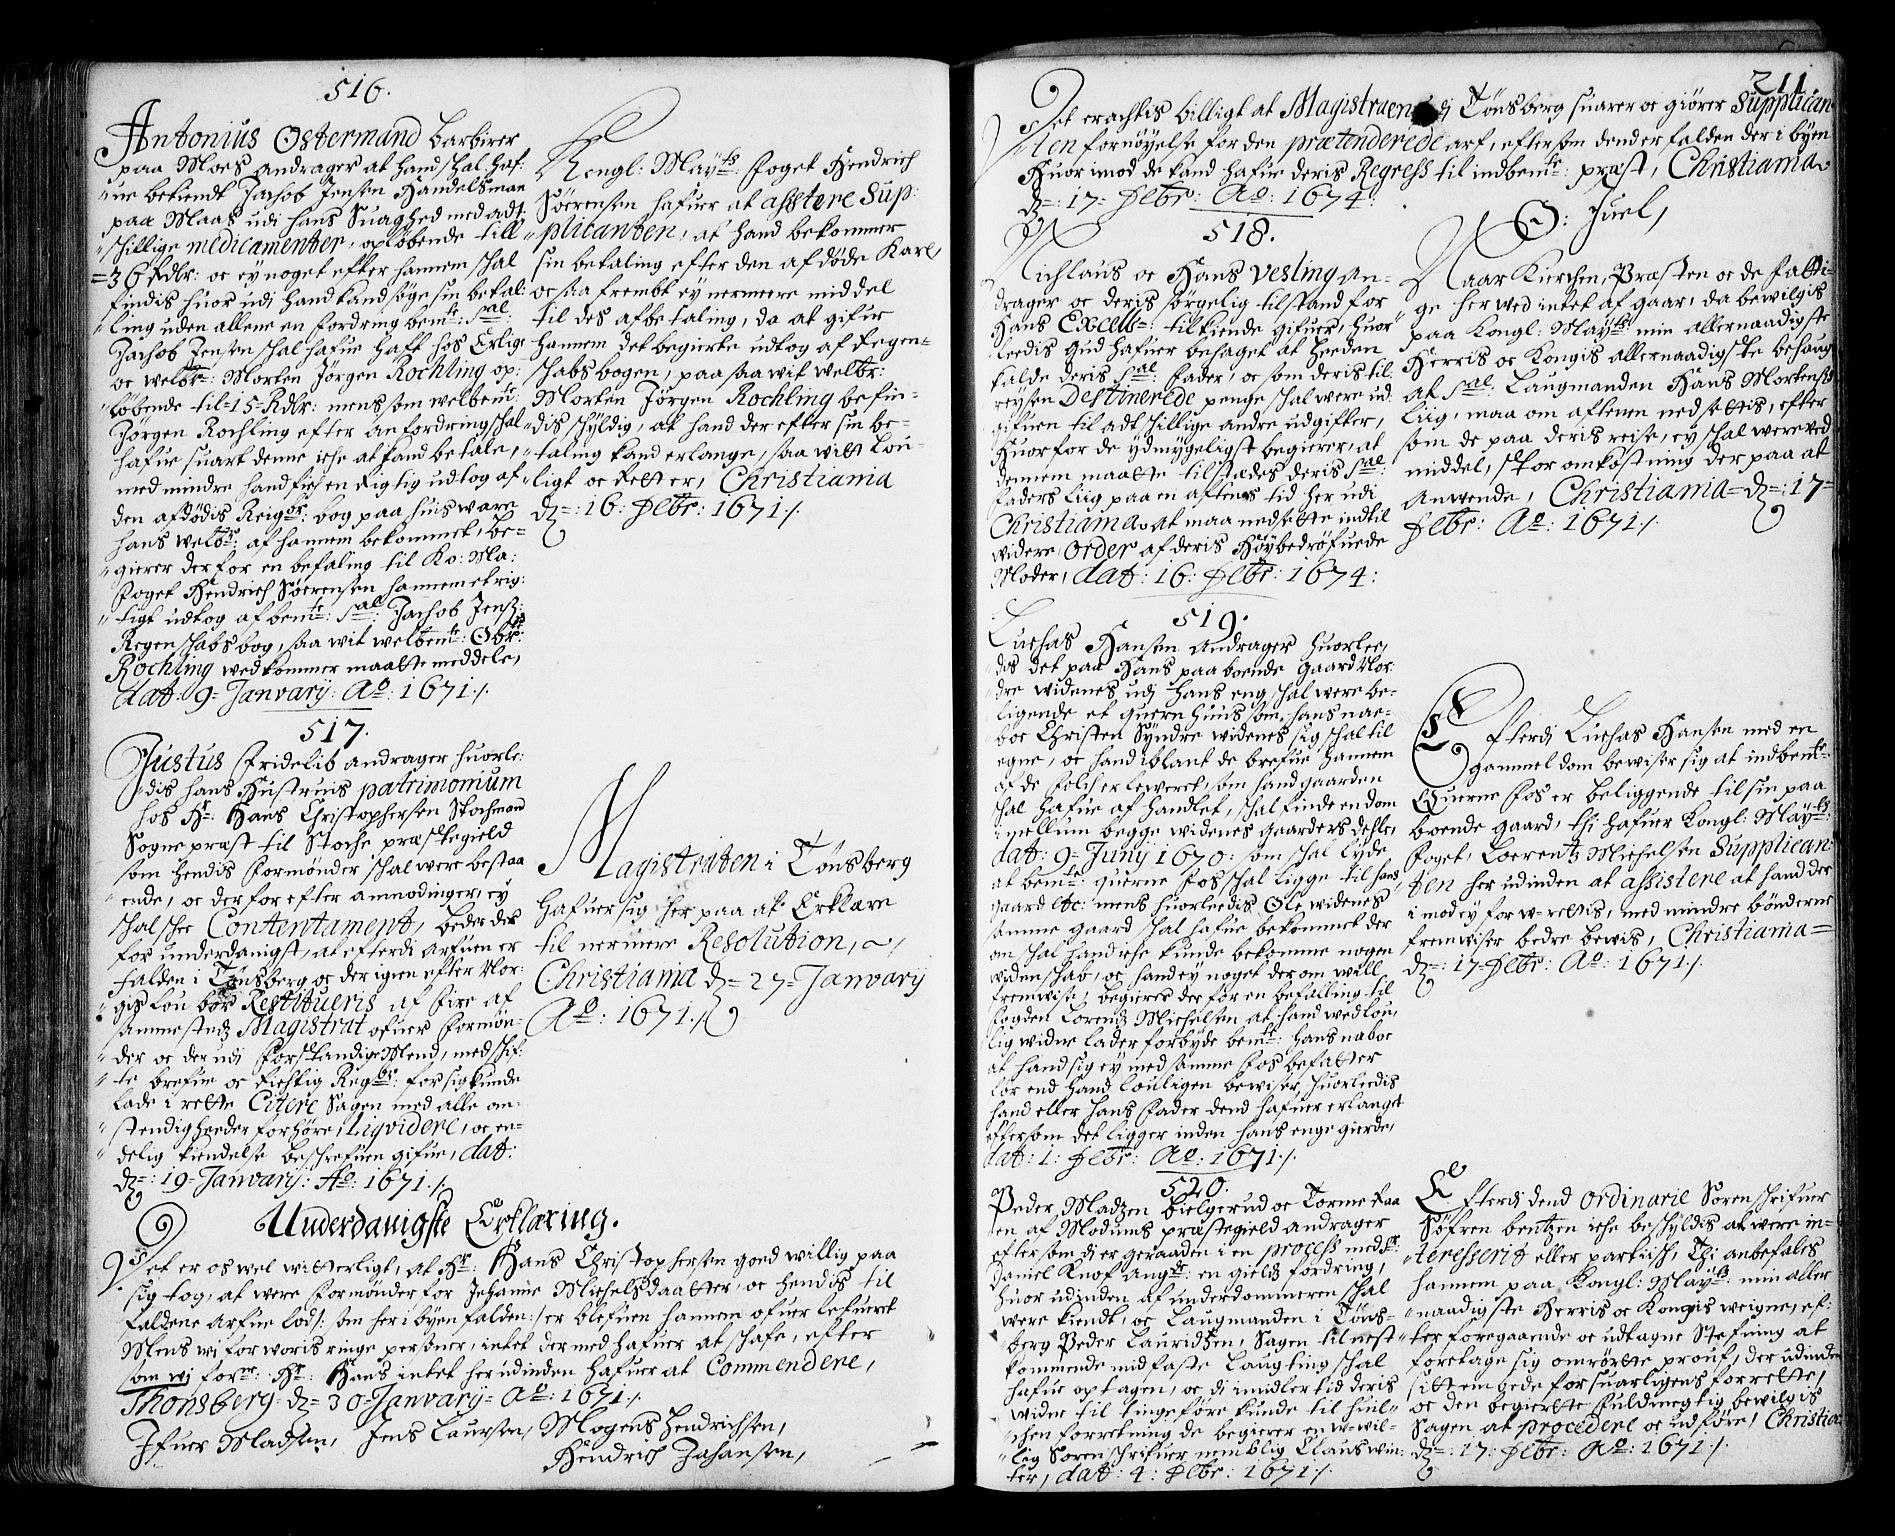 516.
Antonius Ostermand barbirer
paa Moes andrager at hand schal haf:
ue bekiendt Jachob Jensen Handelsman
paa Maas udi hans Suaghed med adt
schillige medicamenter, opløbende till
36 Rdlr: oc ey noget efter hannem schal
findis huor udi hand kand søge sin betal:
ling uden allene en fordring bemte: Sal:
Jachob Jensen schal hafue hafft hos Erlig
oc welbr: Morten Jørgen Rochling op:
løbende til 15 Rdlr: mens som welbemt:
Jørgen Rochling efter anfordring schal
hafue suart denne iche at kand betale,
med mindre hand fich en rigtig udtog af
den afdødis Reigr: bog paa huis ware
hans welbr: af hannem bekommet, be-
gierer derfor en befaling til Ko: Ma:
foget Hendrich Sørensen hannem et rig:
tigt udtog af bemte: Sal Jachob Jens:
Regenschabs bog, saa wit welbemt: Obr:
Rochling wedkommer maatte meddele,
dat: 9 Janvarij: Ao: 1671 ./.
Kongl: Mayts: foget Hendrich
Sørensen hafuer at assistere Sup:
plicanten, at hand bekommer
sin betaling efter den afdøde Karl,
oc saafrembt ey nermere middel
til des afbetaling, da at gifue
hannem det begierte udtog af Regen-
schabs bogen, paa saa wit welbr:
Morten Jørgen Rochling befin-
dis schyldig, at hand der efter sin be-
taling kand erlange, saa witt Lou-
ligt oc Rett er, Christiania
dz: 16: Febr: 1671 ./.
517.
Justus Fridelib andrager huorle:
dis hans Hustruis patrimonium
hos Hr: Hans Christophersen Stochmand
Sogneprest til Stoche prestegield
som hendis formønder schal were bestaa
ende, oc derfor efter anmodinger, ey
schal schee Contentament, beder der
for underdanigst, at efterdi arfuen er
falden i Tønsberg oc der igien efter Nor:
gis Lou bør Restitueris af fire af
samme stedz Magistrat ofuer formøn-
der oc der udi forstandige Mend, med schif:
te brefue oc richtig Regbr: for sig kunde
lade i rette Citere Sagen med alle om-
stendigheeder forhøre, Liqvidere, oc en-
delig kiendelse beschrefuen gifue, dat:
dz: 19 Janvarij: Ao: 1671 ./.
Magistraten i Tønsberg
hafuer sig her paa at Erklære
til nermere Resolution,
Christiania dz 27 Janvarij
Ao: 1671 ./.
Underdanigste Erklæring.
Det er os wel witterligt, at Hr: Hans Christophersen goed willig paa
sig tog, at were formønder for Jehanne Michelsdaatter, oc hendis til
faldene Arfue Lod/: som her i byen falden:/ er blefuen hannem ofuer lefueret
Mens wi for woris ringe persohner, intet der med hafuer at schafe, efter
som wi forne: Hr: Hans intet her udinden hafuer at Commendere,
Thonsberg dz 30 Janvarij Ao: 1671 ./.
Ifuer Madsen, Jens Laursen, Mogens Hendrichsen,
Hendrich Jahansen,
211
Det erachtis billigt at Magistraen udj Tønsberg suarer oc giører Supplican
ten fornøyelse for den prætenderede arf, eftersom dend er falden der i byen
Huor imod de kand hafue deris Regress til indbemte: prest, Christiania
dz: 17 Febr: Ao: 1674:
O: Juel,
518.
Nichlaus oc Hans Vesling an-
drager oc deris sørgelig tilstand for
Hans Excell: tilkiende gifuer, huor
leedis Gud hafuer behaget at heeden
kalde deris Sal: Fader, oc som deris til
reysen Destinerede penge schal were ud
gifuen til adtschillige andre udgifter,
Huorfor de ydmygeligst begierer, at
dennem maatte tilstædes deris Sal:
faders Liig paa en aftens tid her udi
Christiania at maa nedsette indtil
widere Order af deris Høybedrøfuede
Moder, dat: 16: Febr: 1674:
Naar Kirchen, Presten oc de fatti-
ge herwed intet afgaar, da bewilgis
paa Kongl: Mayts: min allernaadigste
Herris oc Kongis allernaadigste behaag
at Sal: Laugmanden Hans Mortens
Liig, maa om aftenen nedsettis, efter
som de paa deris reise, ey schal were ved
middel, stor omkostning der paa at
anwende, Christiania dz: 17
Febr: Ao: 1671 ./.
519.
Luchas Hansen andrager huorlee,
dis det paa Hans paaboende gaard Nor
dre widenes udj Hans eng schal were be-
ligende et querne huus som hans nae-
boe Christen Syndre widenes sig schal til
egne, oc hand iblant de brefue hannem
af de folch er lewerert, som hand gaarden
schal hafue af handlet, schal finde en dom
mellum begge widenes gaarders dehle,
dat: 9 Junij 1670: som schal lyde
at bemte: querne fos schal ligge til hans
gaard etc: mens huorleedis Ole widenes
samme gaard schal hafue bekommet der
om schal hand iche kunde bekomme nogen
widenschab, oc hand ey noget der om will
fremwise, begierer der for en befalling til
fogden Lorendz Michelsen at hand wed lou,
lig widre lader forbyde bemte: hans naboe
at hand sig ey med samme fos befatter
for end hand louligen bewiser, huorledis
hand eller hans fader dend hafuer erlanget
eftersom det ligger inden hans enge gierde,
dat: 1: Febr: Ao: 1671 ./.
Efterdj Luchas Hansen med en
gammel dom bewiser sig at indbemte:
Querne fos er beliggende til sin paa
boende gaard, thi hafuer Kongl: Mayts:
foget, Loerentz Michelsen Supplican
ten her udinden at assistere at hand der
imod ey forw-rettis, med mindre bønderne
fremwiser bedre bewis, Christiania
dz: 17 Febr: Ao: 1671 ./.
520.
Peder Madzen bielgerud oc Torme faa
sen af Modums prestegield andrager
eftersom di er geraaden i en process med Sr:
Daniel Knof ang: en gields fordring,
huor udinden af underdommeren schal
were kiendt, oc Laugmanden i Tøns-
berg Peder Lauridtzen, Sagen til nest
kommende midfaste Laugting schal
hafue optagen, oc di imidlertid deris
widne til tinge føre kunde til huil-
chen forretning de begierer en w-wil-
lig Sorenschrifuer nemblig Claus win
ter, dat: 4: Febr: 1671 ./.
Efterdi dend ordinarie Sorenschrifuer
Søfren bentzen iche beschyldis at were in-
teresserit eller partisch, Thi anbefales
hannem paa Kongl: Mayts: min aller
naadigste Herris oc Kongis weigne, ef:
ter foregaaende oc udtagne Stefning at
foretage sig omrørte prouf, der udinden
sitt embede forsuarligens forrette,
oc den begierte fuldmegtig bewilgis
Sagen at procedere oc udføre, Christia:
dz: 17: Febr: Ao: 1671 ./.